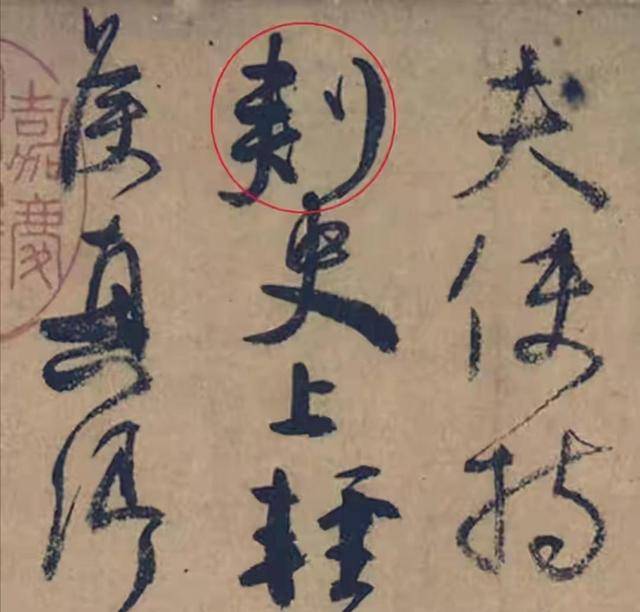 夫使持
刺史上輕
侯真卿
嘉慶